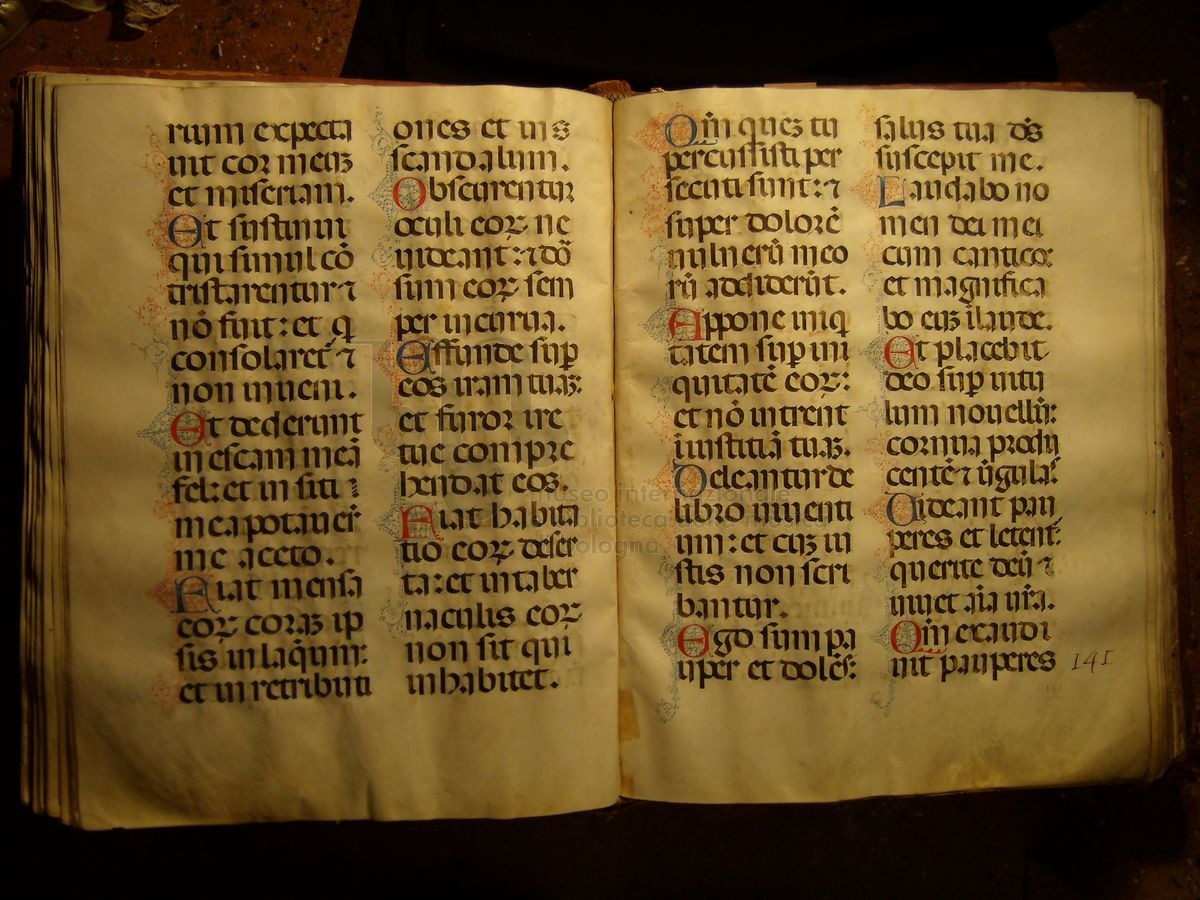 rum expecta
uit cor meuꝫ
et miseriam.
Et sustinui
qui simul cō
tristaretur ⁊
nō fuit: et q̄
consolaret᷑ ⁊
non inueni.
Et dederunt
in escam meā
fel: et in siti
mea potauer̄
me aceto.
Fiat mensa
eoꝝ coraꝫ ip
sis in laq̄um:
et in retributi
ones et in s
scandalum.
Obscurentur
oculi eoꝝ ne
uideant: ⁊ dō
sum eoꝝ sem
per incurua.
Effunde sup̄
eos iram tuaꝫ:
et furor ire
tue compre
hendat eos.
Fiat habita
tio eoꝝ deser
ta: et in taber
naculis eoꝝ
non sit qui
inhabitet.
Qm̄ queꝫ tu
percussisti per
secuti sunt: ⁊
super dolorē
uulnerū meo
rū addiderūt.
Appone iniq
tatem sup̄ ini
quitatē eoꝝ:
et nō intrent
ī iustitiā tuaꝫ.
Deleantur de
libro uiuenti
um: et cuꝫ iu
stis non scri
bantur.
Ego sum pa
uper et dolēs:
salus tua ds̄
suscepit me.
Laudabo no
men dei mei
cum cantico:
et magnifica
bo euꝫ ī laude.
Et placebit
deo sup̄ uitu
lum nouellū:
cornua produ
centē ⁊ ūgulas.
Uideant pau
peres et letent᷑:
querite deū ⁊
uiuet aīa ur̄a.
Qm̄ exaudi
uit pauperes
141
museo internazionale
biblioteca della musica
bologna